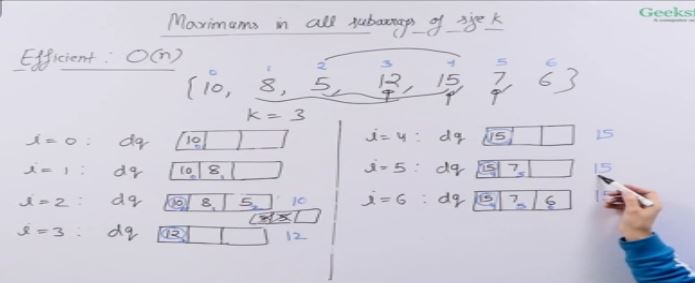 Maximums in all subarrays of size k
Geeksf
Efficient : O(n)
0 1 2 3 4 5 6
{10, 8, 5, 12, 15, 7, 6}
k = 3
i=0 : dq 10
i=1 : dq 10 8
i=2 : dq 10 8 5 10
i=3 : dq 12 12
i=4 : dq 15 15
i=5 : dq 15 7 15
i=6 : dq 15 7 6